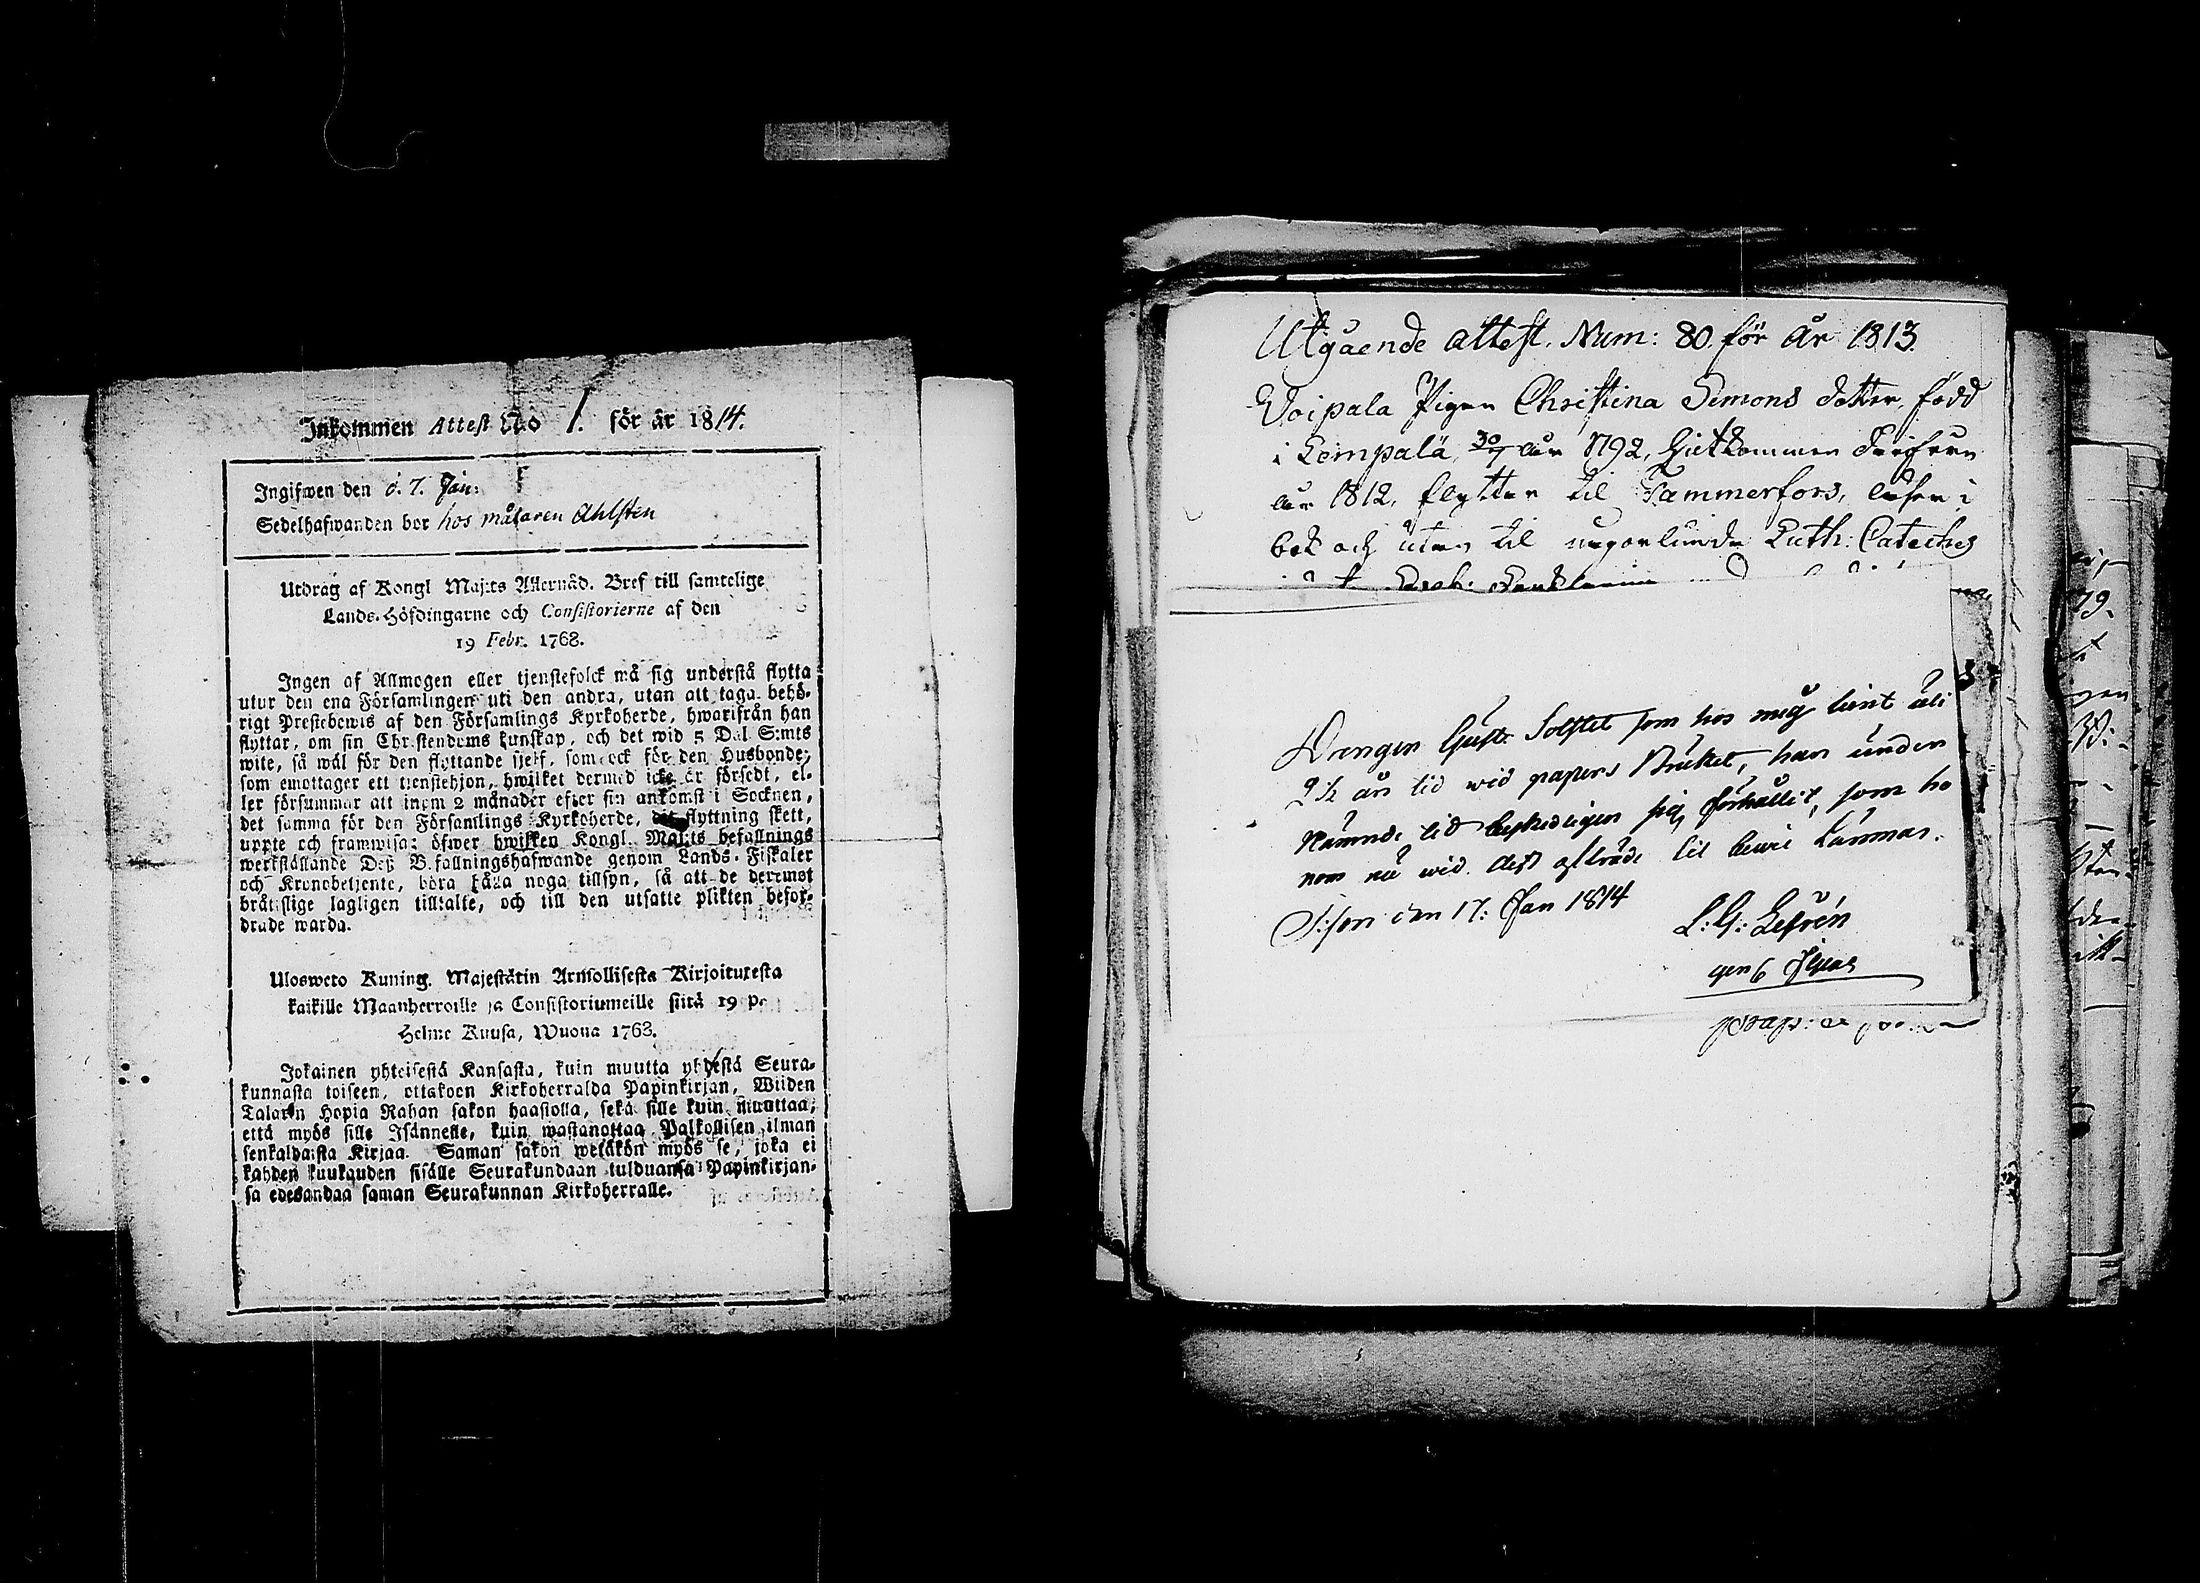 Inkommen Attest No 1. för år 1814.
Ingifwen den d. 7. Jan:
Sedelhafwanden bor hos målaren Ahlsten
Utdrag af Kongl Maj:ts Allernåd. Bref till samtelige
Lands-Höfdingarne och Consistorierne af den
19 Febr. 1768.
Ingen af Allmogen eller tjenstefolck må sig understå flytta
utur den ena Församlingen uti den andra, utan att taga behö-
rigt Prestebewis af den Församlings Kyrkoherde, hwarifrån han
flyttar, om sin Christendoms kunskap, och det wid 5 Dal S:mts
wite, så wäl för den flyttande sjelf, som ock för den Husbonde,
som emottager ett tjenstehjon, hwilket dermed icke är försedt, el-
ler försummar att inom 2 månader efter sin ankomst i Socknen,
det samma för den Församlings Kyrkoherde, dit flyttning skett,
uppte och framwisa: öfwer hwilken Kongl. Maj:ts befallnings
werkställande Deß Befallningshafwande genom Lands-Fiskaler
och Kronobetjente, böra hålla noga tillsyn, så att de deremot
bråtslige lagligen tilltalte, och till den utsatte plikten befor-
drade warda.
Ulosweto Kuning. Majestätin Armollisesta Kirjoituxesta
kaikille Maanherroille ja Consistoriumeille siitä 19 p.
Helme Kuusa, Wuona 1768.
Jokainen yhteisestä Kansasta, kuin muutta yhdestä Seura-
kunnasta toiseen, ottakoen Kirkoherralda Papinkirjan, Wiiden
Talarin Hopia Rahan sakon haastolla, sekä sille kuin muuttaa,
että myös sille Isännelle, kuin wastanottaa Palkollisen ilman
senkaldaista Kirjaa. Saman sakon wetäkön myös se, joka ei
kahden kuukauden sisälle Seurakundaan tulduansa Papinkirjan-
sa edesandaa saman Seurakunnan Kirkoherralle.
Utgående attest. Num: 80 för år 1813.
Woipala Pigan Christina Simons dotter, född
i Lempälä, 30/7 år 1792, hitkommen därifrån
år 1812, flyttar til Tammerfors, läser i
bok och utan til någorlunda Luth: Cateches
Drengen Gust: Solstet som hos mig tient uti
2 1/2 års tid wid papers Bruket, har under
Nämnde tid beskedeligen sig förhållit, som ho
nom nu wid dess afträde til bewis lämnas.
T:fors den 17: Jan 1814
L: G: Lefrén